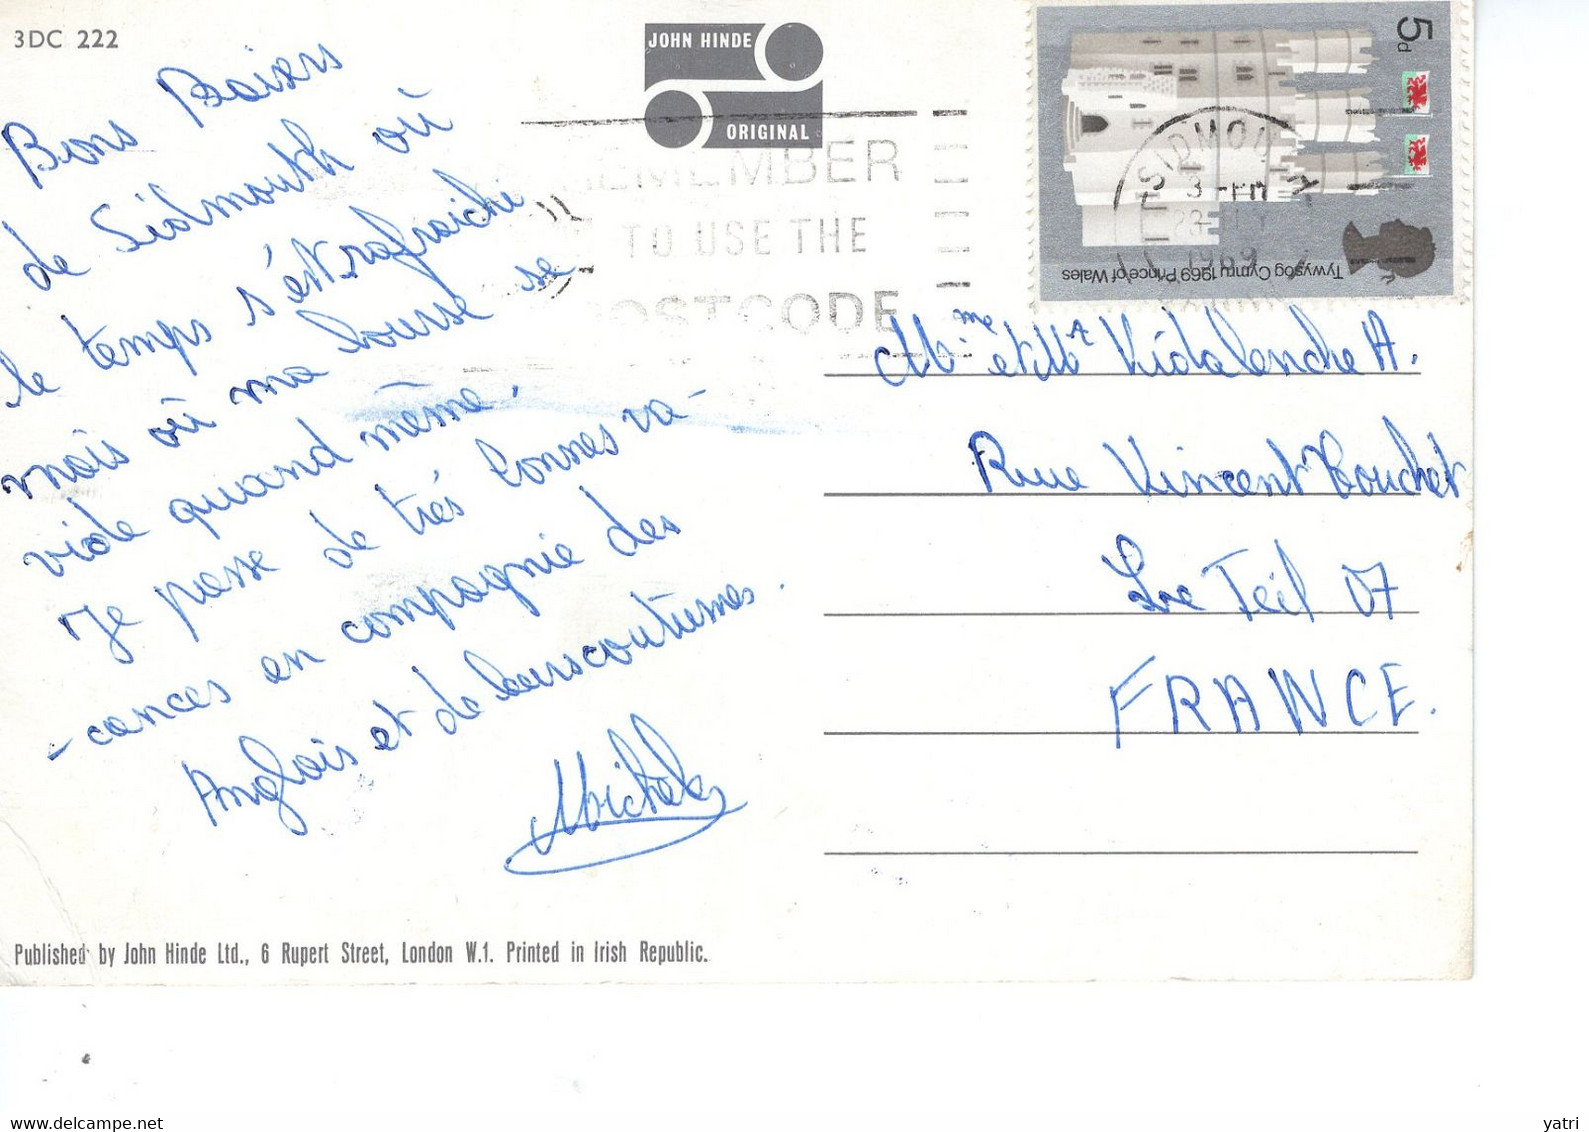 3DC 222
JOHN HINDE
ORIGINAL
Bons Baisers
de Sidmouth où
le temps s'est rafraichi
mais où ma bourse se
vide quand même.
Je passe de très bonnes va-
-cances en compagnie des
Anglais et de leurs coutumes.
Michele
Published by John Hinde Ltd., 6 Rupert Street, London W.1. Printed in Irish Republic.
REMEMBER
TO USE THE
POSTCODE
5d
Tywysog Cymru 1969 Prince of Wales
SIDMOUTH
3-PM
1969
Mme et Mr Vidalenche A.
Rue Vincent Touchet
Le Teil 07
FRANCE.
yatri